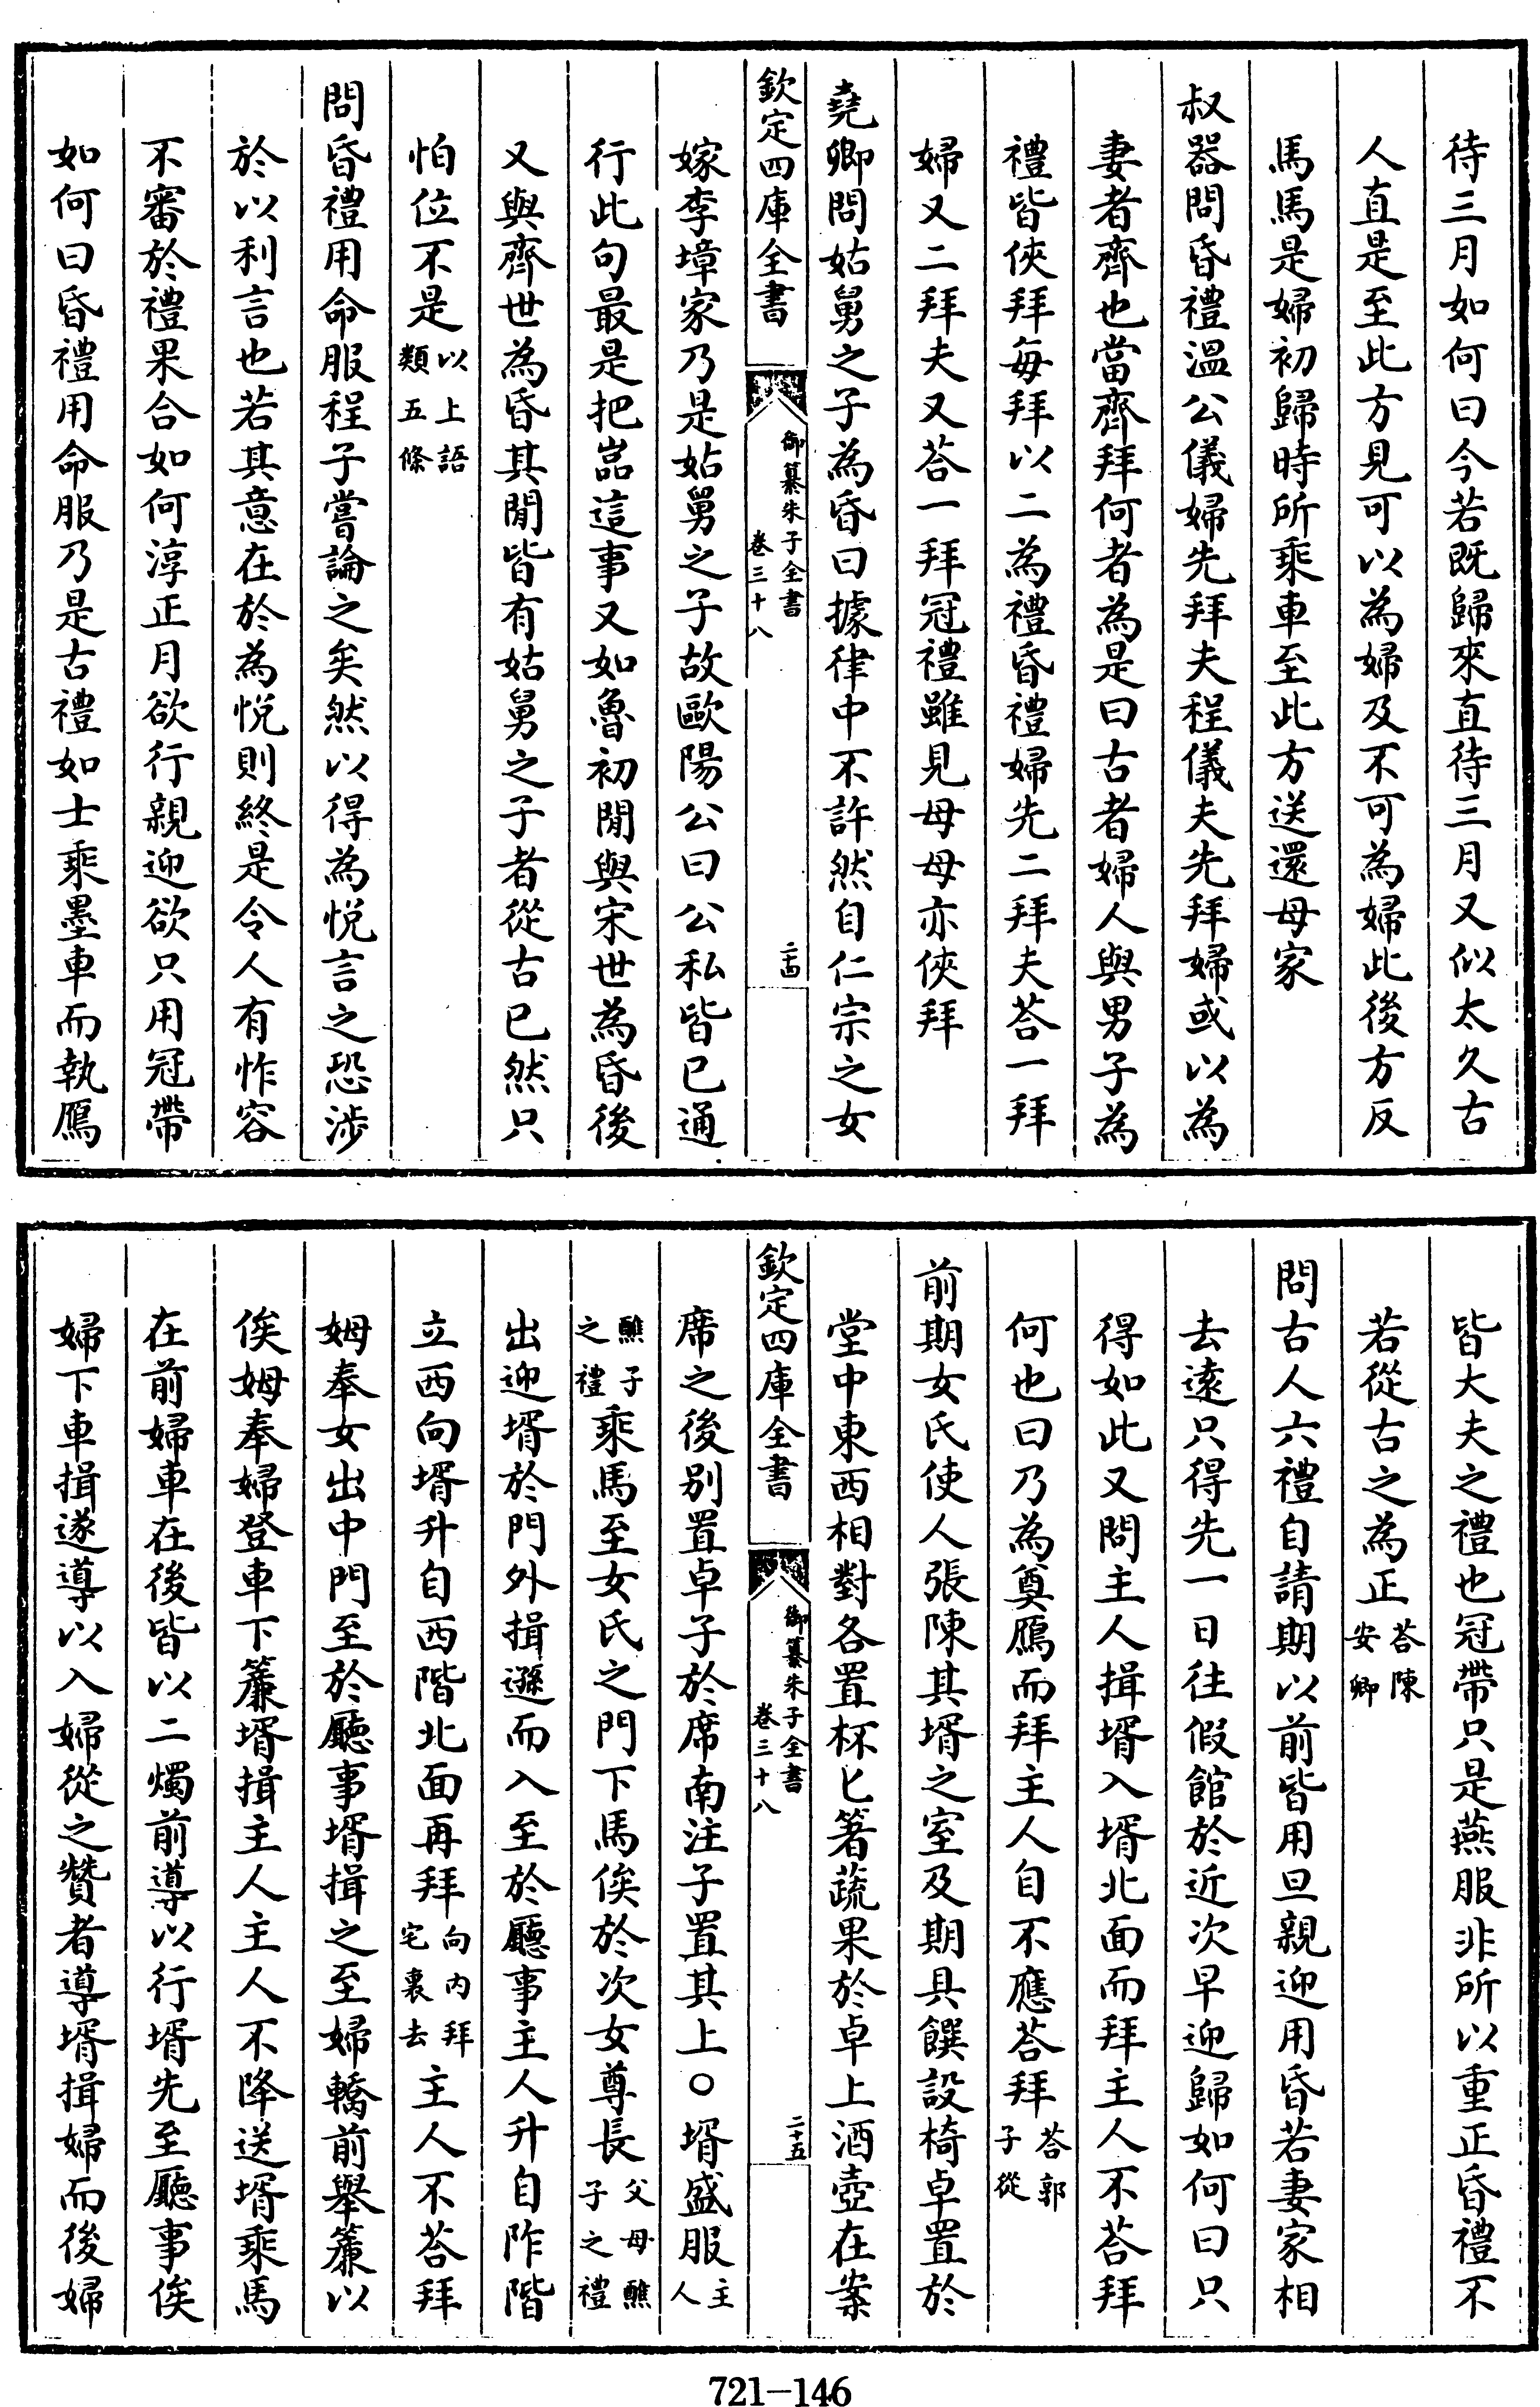 待三月如何曰今若既歸來直待三月又似太久古
人直是至此方見可以為婦及不可為婦此後方反
馬馬是婦初歸時所乘車至此方送還母家
叔器問昏禮溫公儀婦先拜夫程儀夫先拜婦或以為
妻者齊也當齊拜何者為是曰古者婦人與男子為
禮皆俠拜每拜以二為禮昏禮婦先二拜夫荅一拜
婦又二拜夫又荅一拜冠禮雖見母母亦俠拜
堯卿問姑舅之子為昏曰據律中不許然自仁宗之女
欽定四庫全書
御纂朱子全書
卷三十八
二十四
嫁李璋家乃是姑舅之子故歐陽公曰公私皆已通
行此句最是把嵓這事又如魯初閒與宋世為昏後
又與齊世為昏其閒皆有姑舅之子者從古已然只
怕位不是以上語類五條
問昏禮用命服程子嘗論之矣然以得為悅言之恐涉
於以利言也若其意在於為悅則終是令人有怍容
不審於禮果合如何淳正月欲行親迎欲只用冠帶
如何曰昏禮用命服乃是古禮如士乘墨車而執鴈
皆大夫之禮也冠帶只是燕服非所以重正昏禮不
若從古之為正荅陳安卿
問古人六禮自請期以前皆用旦親迎用昏若妻家相
去遠只得先一日往假館於近次早迎歸如何曰只
得如此又問主人揖壻入壻北面而拜主人不荅拜
何也曰乃為奠鴈而拜主人自不應荅拜荅郭子從
前期女氏使人張陳其壻之室及期具饌設椅卓置於
堂中東西相對各置杯匕箸蔬果於卓上酒壺在案
欽定四庫全書
御纂朱子全書
卷三十八
二十五
席之後別置卓子於席南注子置其上○壻盛服主人
醮子之禮乘馬至女氏之門下馬俟於次女尊長父母醮子之禮
出迎壻於門外揖遜而入至於廳事主人升自阼階
立西向壻升自西階北面再拜向內拜宅裏去主人不荅拜
姆奉女出中門至於廳事壻揖之至婦轎前舉簾以
俟姆奉婦登車下簾壻揖主人主人不降送壻乘馬
在前婦車在後皆以二燭前導以行壻先至廳事俟
婦下車揖遂導以入婦從之贊者導壻揖婦而後婦
721-146